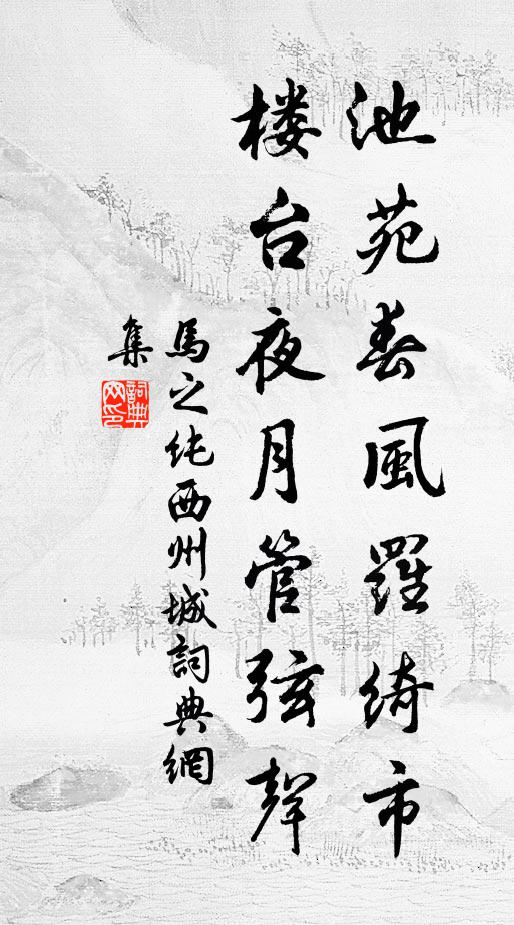 池苑春風羅綺市
楼台夜月管弦聲
馬之純西州城詞典網
集
詞典
网印